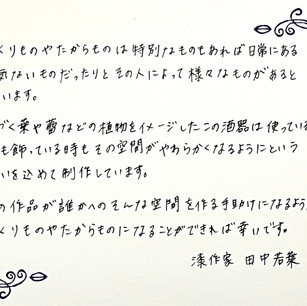 くりものやたからものは特別なものもあれば日常にある
気ないものだったりとその人によって様々なものがあると
います。
づく葉や蕾などの植物をイメージしたこの酒器は使ってい
も飾っている時もその空間がやわらかくなるようにという
いを込めて制作しています。
の作品が誰かへのそんな空間を作る手助けになるよう
くりものやたからものになることができれば幸いです。
漆作家 田中若葉